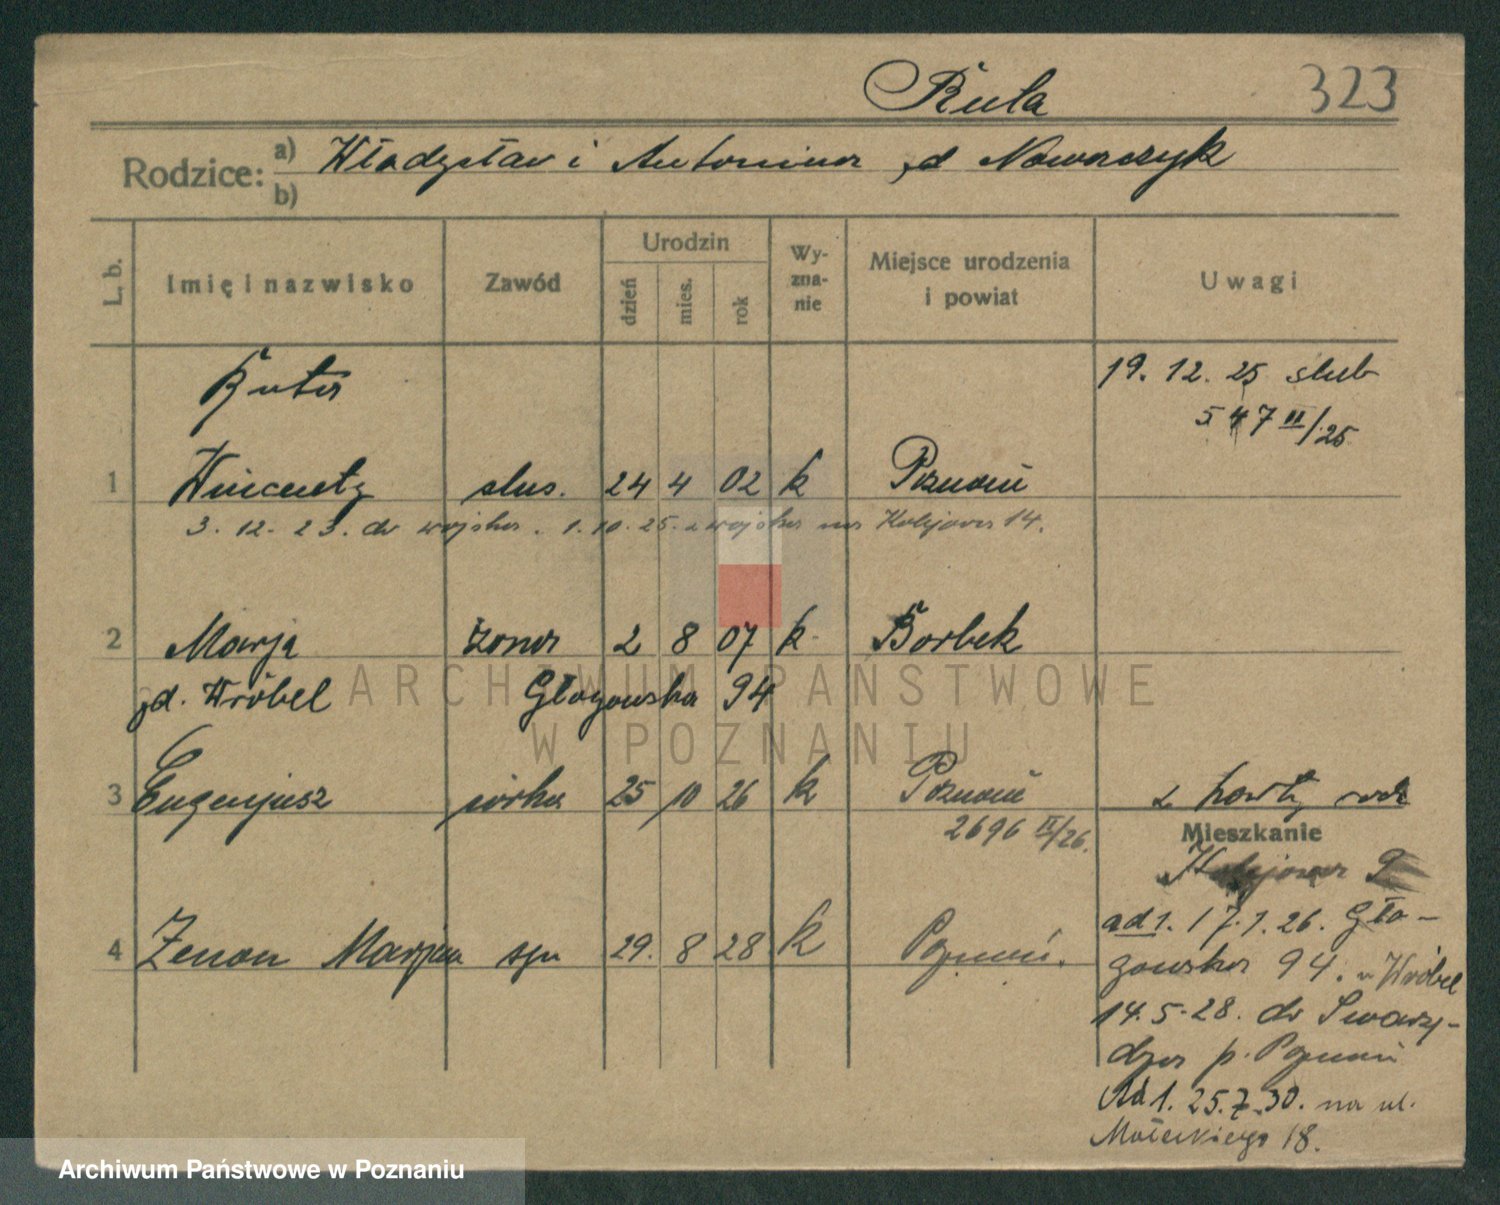 Ruta 323
Rodzice: a) Władysław i Antonina zd Nowaczyk
b)
L. b. Imię i nazwisko Zawód Urodzin dzień mies. rok Wy-zna-nie Miejsce urodzenia i powiat Uwagi
Ruta 19. 12. 25 ślub
547 II/25
1 Wincenty ślus. 24 4 02 k Poznań
3. 12. 23. do wojska. 1. 10. 25. z wojska na Kolejowa 14.
2 Marja żona 2 8 07 k Borbek
zd. Wróbel Głogowska 94
3 Eugenjusz córka 25 10 26 k Poznań z karty rodz
2696 II/26.
Mieszkanie
Kolejowa 9
4 Zenon Marjan syn 29. 8 28 k Poznań.
ad 1. 17. 1. 26. Gło-
gowska 94. u Wróbel
14. 5. 28. do Swarzę-
dza p. Poznań
Ad 1. 25. 7. 30. na ul.
Małeckiego 18.
ARCHIWUM PAŃSTWOWE
W POZNANIU
Archiwum Państwowe w Poznaniu